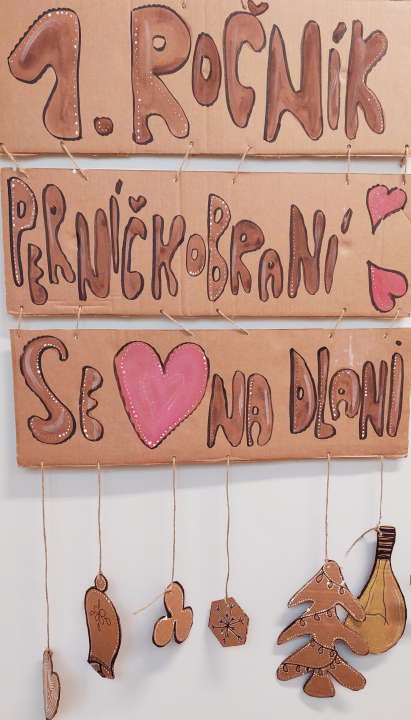 1. ROČNÍK
PERNÍČKOBRANÍ
SE NA DLANI